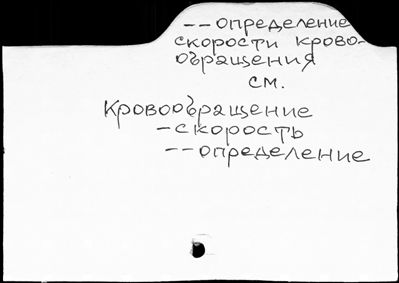 -- определение
скорости крово-
обращения
см.
Кровообращение
- скорость
-- определение